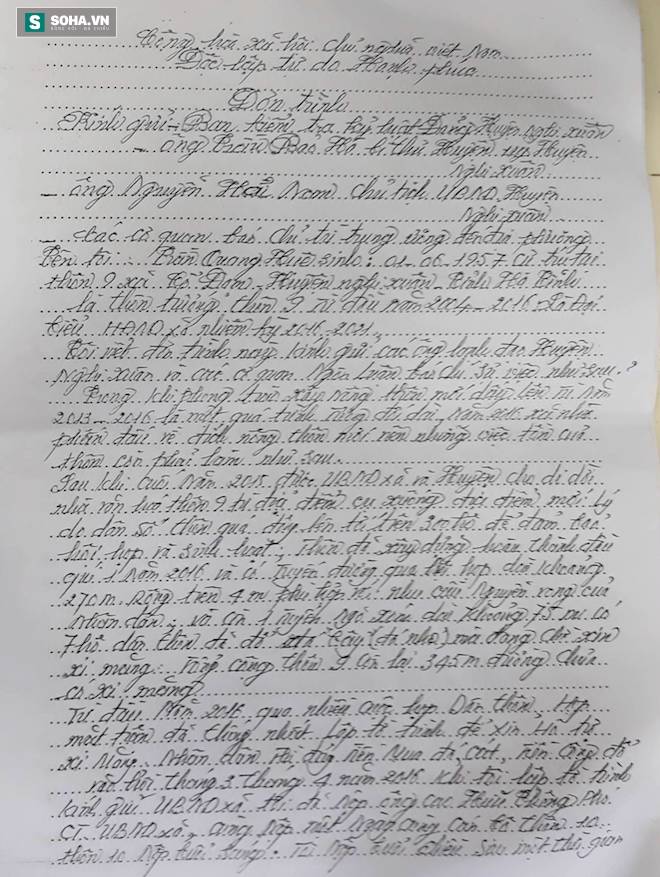 SOHA.VN
Cộng hòa xã hội chủ nghĩa việt Nam
Độc lập tự do Hạnh phúc
Đơn trình
Kính gửi - Ban kiểm tra kỷ luật Đảng Huyện nghi xuân
- ông Bao Hà bí thư Huyện ủy Huyện
Nghi Xuân
- ông Nguyễn Nam chủ tịch UBND Huyện
Nghi xuân
- Các cơ quan báo chí từ trung ương đến địa phương
Tên tôi: Trần Quang Huê sinh: 01-06.1957 cư trú tại
thôn 9 xã Cổ Đạm - Huyện nghi xuân - Tỉnh Hà Tĩnh
là thôn trưởng thôn 9 từ đầu năm 2014-2016. Là Đại
biểu HĐND xã nhiệm kỳ 2016-2021.
Tôi viết đơn trình này kính gửi các ông lãnh đạo Huyện
Nghi Xuân và các cơ quan Ngôn Luận báo chí Sự việc như sau:
Trong khi phong trào xây nông thôn mới dấy lên từ Năm
2013-2016 là một quá trình tương đối dài. Năm 2015 xã nhà
phấn đấu về đích nông thôn mới nên những việc tồn của
thôn còn phải làm như sau.
Sau khi cuối Năm 2015 được UBND xã và Huyện cho di dời
nhà văn hoá thôn 9 từ địa điểm cũ xuống địa điểm mới Lý
do dân số thôn quá đông lên tới trên 200 hộ để đảm bảo
hội họp và sinh hoạt. thôn đã xây dựng hoàn thành đầu
quý 1 Năm 2016 và có tuyến đường qua dài khoảng
270m rộng trên 4m nhu cầu Nguyện vọng của
Nhân dân. và còn 1 tuyến Ngõ xóm dài khoảng 75m có
7 hộ dân thôn đã đổ (đá nhỏ) mà đang chờ xin
xi măng. Tổng cộng thôn 9 còn lại 345m đường chưa
có xi măng
Từ đầu Năm 2016 qua nhiều cuộc họp Dân thôn, Họp
mặt trận đã thống nhất Lập tờ trình để xin Hỗ trợ
xi Măng. Nhân dân đã đóng tiền Mua đá, cát, tiền công đổ
vào hồi tháng 3. tháng 4 năm 2016 khi tôi lập tờ trình
kính gửi UBND xã thì đã nộp ông Cao Huê Phó
CT. UBND xã. cùng Nộp một Ngày cùng cán bộ thôn 10
thôn 10 Nộp buổi sáng. Tôi Nộp buổi chiều Sau một thời gian